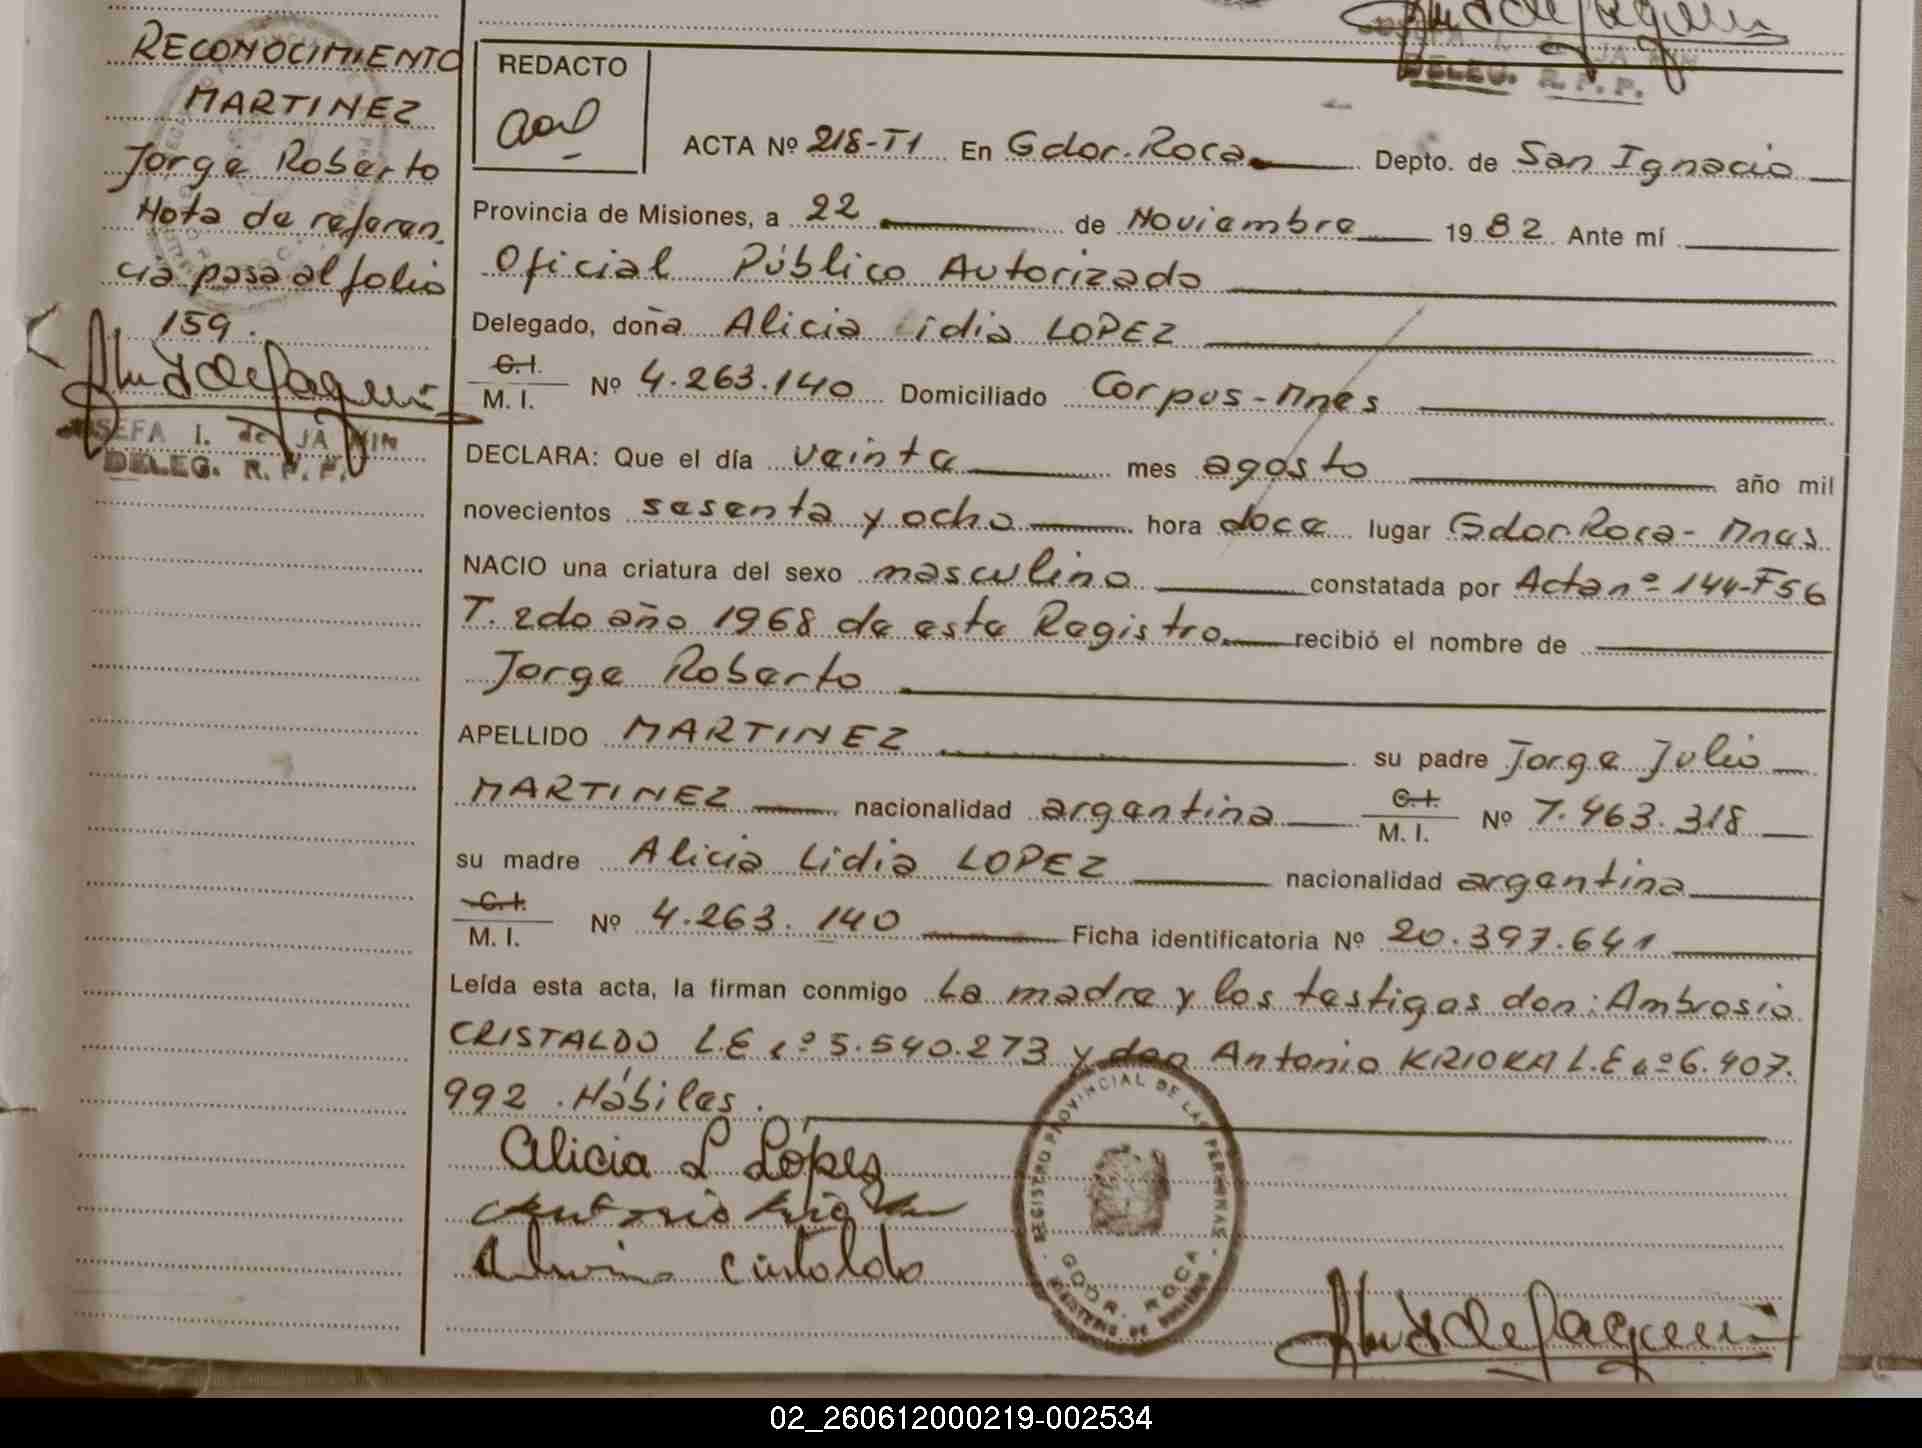 RECONOCIMIENTO
MARTINEZ
Jorge Roberto
Nota de referen
cia pasa al folio
159.
JOSEFA I. de JA MIN
DELEG. R. P. P.
DELEG. R. P. P.
REDACTO
ACTA Nº 218-T1 En Gdor. Roca Depto. de San Ignacio
Provincia de Misiones, a 22 de Noviembre 1982 Ante mí
Oficial Público Autorizado
Delegado, doña Alicia Lidia LOPEZ
C.I.
M. I. Nº 4.263.140 Domiciliado Corpus-Mnes
DECLARA: Que el día veinte mes agosto año mil
novecientos sesenta y ocho hora doce lugar Gdor. Roca- Mnes
NACIO una criatura del sexo masculino constatada por Acta nº 144-F56
T. 2do año 1968 de este Registro recibió el nombre de
Jorge Roberto
APELLIDO MARTINEZ su padre Jorge Julio
MARTINEZ nacionalidad argentina C.I. M. I. Nº 7.463.318
su madre Alicia Lidia LOPEZ nacionalidad argentina
C.I.
M. I. Nº 4.263.140 Ficha identificatoria Nº 20.397.641
Leída esta acta, la firman conmigo La madre y los testigos don: Ambrosio
CRISTALDO L.E nº 5.540.273 y don Antonio KRIOKA L.E nº 6.407.
992. Hábiles.
Alicia L López
Antonio
Cristaldo
REGISTRO PROVINCIAL DE LAS PERSONAS
GODR. ROCA
MINISTERIO DE
02_260612000219-002534